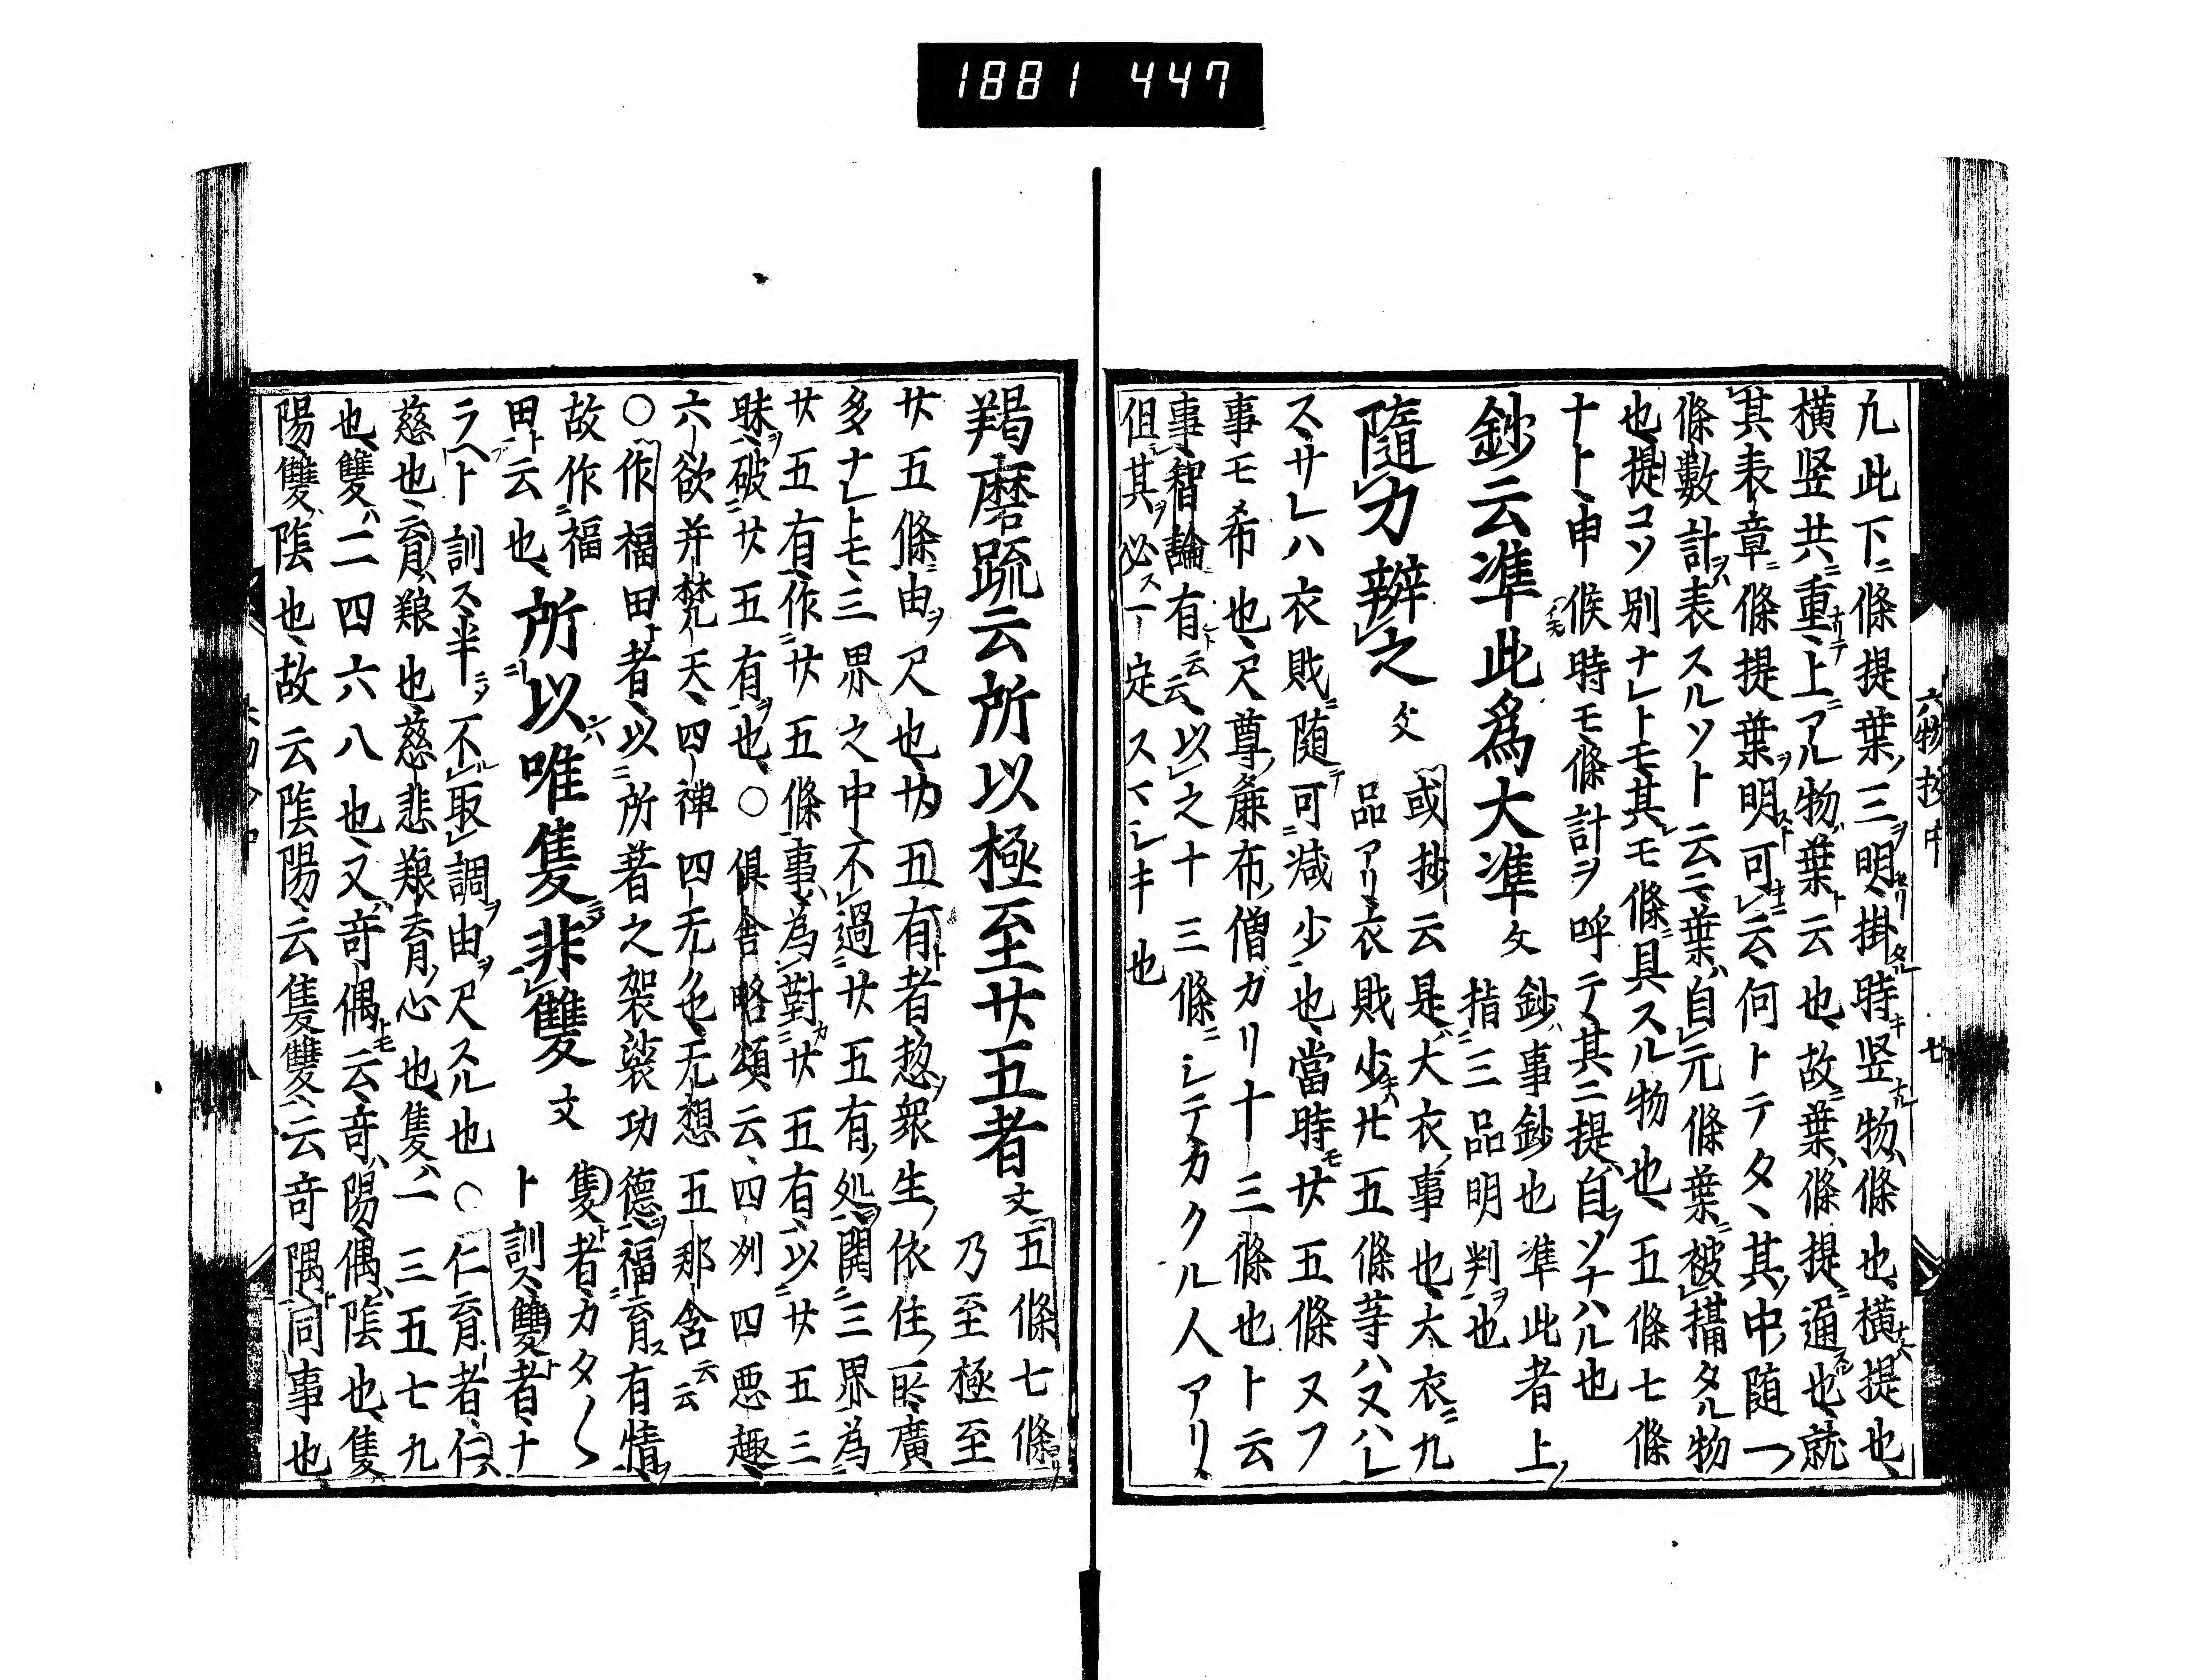 1881 447
六物抄中 七
凢此下ニ條提葉ノ三ヲ明セリ掛タル時キ竖ナル物ハ條也横ナルハ提也
横竖共ニ重ナリテ上ニアル物ヲ葉ト云也故ニ葉ハ條提ニ通スル也就
其表章ニ條提葉ヲ明スト可キニ云何トテタヽ其ノ中随一ノ
條數計ヲハ表スルソト云云葉ハ自元條葉ニ被攝タル物
也提コソ別ナレトモ其レモ條ニ具スル物也五條七條
十トト申候時モ條計ヲ呼テ其ニ提自ソナハル也
鈔云準此爲大準文 鈔ハ事鈔也準此者上ノ
指ニ三品明判ヲ也
隨力辦之文 或抄云是ハ大衣ノ事也大衣ニ九
品アリ衣財少キハ廿五條等ハヌハレ
スサレハ衣財ニ随テ可減少也當時モ廿五條ヌフ
事モ希也尺尊ノ麁布ノ僧ガリ十三條也ト云
事智論ニ有ト云云以之十三條ニシテカクル人アリ
但其ヲ必ス一定スマシキ也
羯磨疏云所以極至廿五者文 五條七條ヨリ
乃至極至
廿五條ニ由ヲ尺也廿五有ト者惣ヲ衆生ノ依住ノ所廣
多ナレトモ三界之中不過廿五有ノ処ヲ開ニ三界為ニ
廿五有作ニ廿五條事ハ為對カ廿五有以ニ廿五三
昧ヲ破ニ廿五有ヲ也○俱舎略頌云四州四悪趣
六欲并梵天四禅四无色无想五那含云云
○作福田ト者以ニ所著之袈裟功德ヲ福ニ育ス有情ヲ
故作ニ福
田ト云也 所以唯隻非雙文 隻ト者カタ〱
ト訓ス雙ト者ナ
ラヘト訓ス半ニヲ不取調ヲ由ヲ尺スル也○仁育者仁ハ
慈也育ハ粮也慈悲粮育ノ心也隻ハ一三五七九
也雙ハ二四六八也又ハ奇偶トモ云奇ハ陽偶ハ陰也隻
陽雙ハ陰也故云陰陽云隻雙云奇隅ト同事也